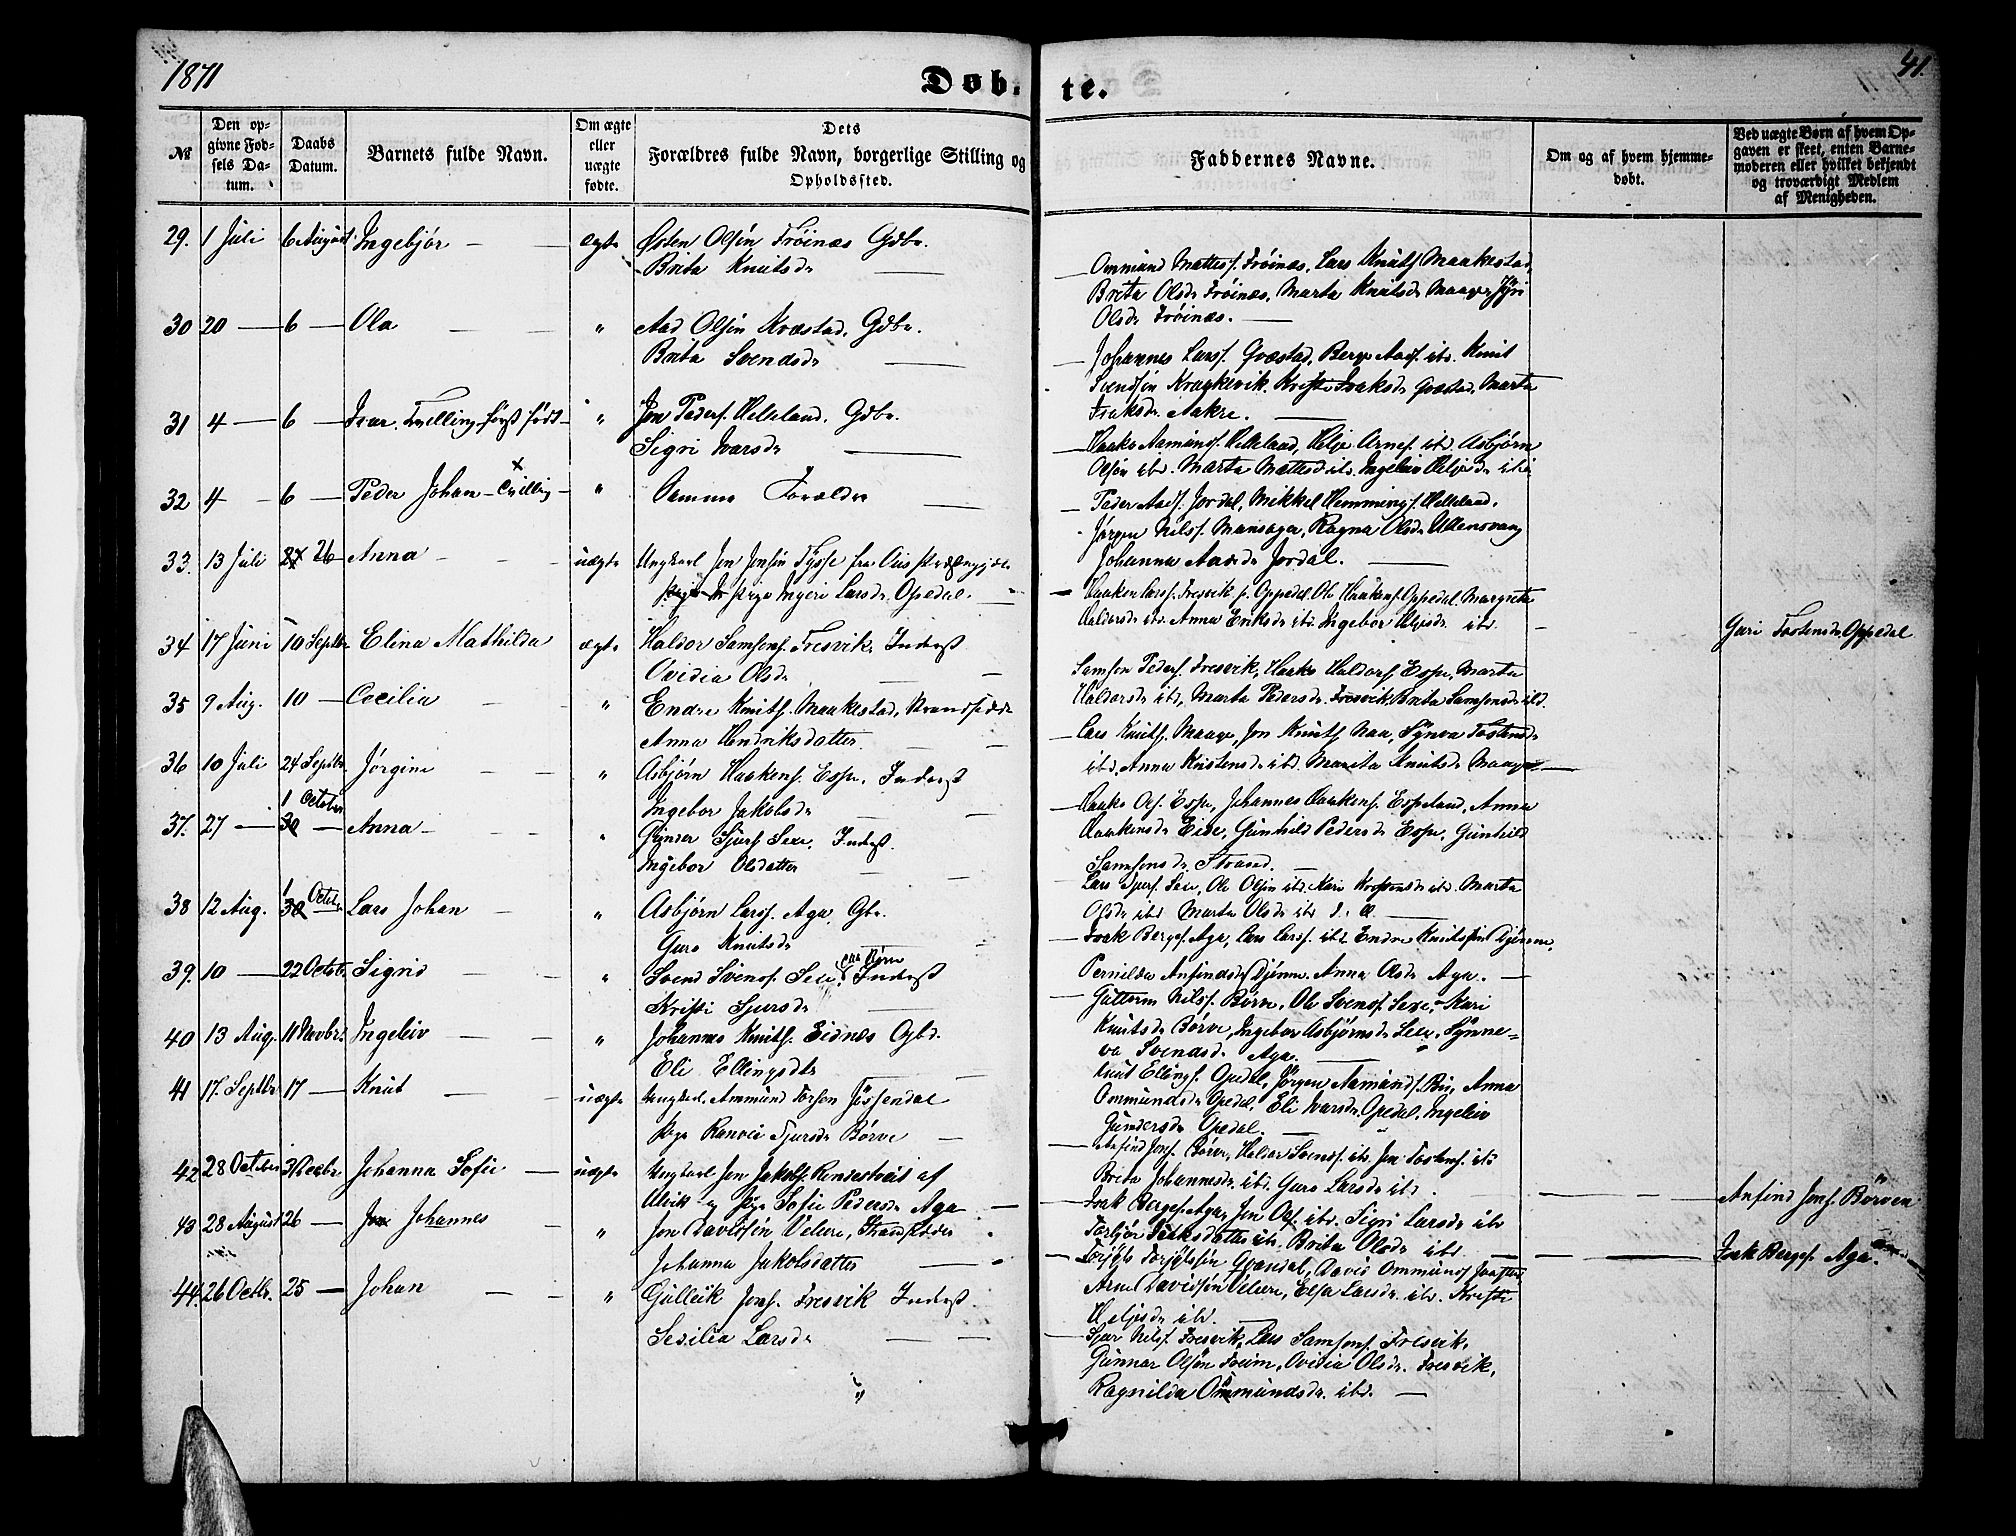 1871
Døb-
te.
41.
№
Den opgivne Fødsels Datum.
Daabs Datum.
Barnets fulde Navn.
Om ægte eller uægte fødte.
Dets Forældres fulde Navn, borgerlige Stilling og Opholdssted.
Faddernes Navne.
Om og af hvem hjemmedøbt.
Ved uægte Børn af hvem Opgaven er skeet, enten Barnemoderen eller hvilket bekjendt og troværdigt Medlem af Menigheden.
29. 1 Juli 6 August Ingebjør ægte Østen Olsøn Frøinæs Gdbr.
Brita Knutsdr
Ommund Mattess. Frøinæs, Lars Knuts. Maakestad,
Brita Olsdr Frøinæs, Marta Knutsdr Maage,
Olsdr Frøinæs.
30 20 6 Ola " Aad Olsøn Kvæstad, Gdbr.
Brita Svendsdr
Johannes Larss. Qvæstad, Berge Aads. ibd. Knut
Svendsøn Kragkevik, Kristi Isaksdr Qvæstad, Marta
Isaksdr Aakre.
31 4 6 Ivar. Tvilling først født " Jon Peders. Helleland. Gdbr.
Sigri Ivarsdr
Haako Aamunds. Helleland, Helje Arnes. ibd. Asbjørn
Olsøn ibd. Marta Mattesd. ibd. Ingeleiv Heljesdr ibd.
32 4 6 Peder Johan Tvilling " Samme Forældre
Peder Aads. Jordal, Mikkel Hemmings. Helleland.
Jørgen Nilss. Mansager, Ragna Olsdr Ullensvang
Johanna Aadsdr Jordal.
33. 13 Juli 26 Anna uægte Ungkarl Jon Jonsøn Tysse fra
pige Ingeri Larsdr Opedal.
Haaken Larss. Fresvik p. Oppedal, Ole Haakens. Oppedal, Margreta
Haldorsdr ibd. Anna Eriksdr ibd. Ingebor Heljesdr ibd.
Guri Tostensdr Oppedal
34 17 Juni 10 Septbr Elina Mathilda ægte Haldor Samsons. Fresvik, Inderst
Ovidia Olsdr
Samson Peders. Fresvik, Haako Haldors. Espe, Marta
Haldorsdr ibd, Marta Pedersdr Fresvik, Brita Samsonsdr ibd.
35 9 Aug. 10 Cecilia " Endre Knuts. Maakestad, Strandsidder
Anna Hendriksdatter
Lars Knuts. Maage, Jon Knuts. Naa, Synva Tostensdr
ibd, Anna Kristensdr ibd. Marita Knutsdr Maage
36 10 Juli 24 Septbr. Jørgine " Asbjørn Haakens. Espe, Inderst
Ingebor Jakobsdr
Haako Ols. Espe, Johannes Haakens. Espeland, Anna
Haakensdr Eide, Gunhild Pedersdr Espe, Gunhild
Samsonsdr Strand.
37. 27 1 October Anna " Gunder Sjurs. Sexe, Inderst.
Ingebor Olsdatter
Lars Sjurs. Sexe, Ole Olsøn ibd. Kari ibd. Marta
Olsdr ibd Marta Olsdr ibd d. æ.
38 12 Aug. 1 Octbr Lars Johan " Asbjørn Larss. Aga, Gbr.
Guro Knutsdr
Isak Berges. Aga, Lars Larss. ibd. Endre Knutsøn Djønne,
Pernilda Anfinsdr Djønne, Anna Olsdr Aga.
39. 10 22 Octobr. Sigrid " Svend Svends. Sexe, paa Børve Inderst
Kristi Sjursdr
Guttorm Nilss. Børve, Ole Svends. Sexe, Kari
Knutsdr Børve, Ingebor Asbjørnsdr Sexe, Synne-
va Svendsd. Aga.
40 13 Aug. Novbr. Ingeleiv " Johannes Knuts. Eidnæs Gbd.
Eli Ellingsdtr
Knut Ellings. Opedal, Jørgen Aamunds. Bu, Anna
Ommundsdr Opedal, Eli Ivarsdr Opedal, Ingeleiv
Gundersdr Opedal.
41 17. Septbr 17 Knut uægte Ungkarl. Ammund Torsen Jøssendal
Pige Ranvei Sjursdr Børve
Anfind Jons. Børve, Haldor Svends. ibd. Jon Tostens. ibd
Brita Johannesdr ibd. Guro Larsdr ibd.
Anfind Jons. Børven
42 28 October 3 Decbr. Johanna Sofie uægte Ungkarl Jon Jakobs. Rondestveit af
Ulvik og Pige Sofie Pedersdr Aga
Isak Berges. Aga, Jon Ols. ibd. Sigri Larsdr ibd
Torbjør Isaksdatter ibd, Brita Olsdr ibd.
Isak Berges. Aga
43 28 August 26 Johannes " Jon Davidsøn Velure, Strandsidder
Johanna Jakobsdatter
Torjuls Torjulssøn Qvandal, David Ommunds.
Arne Davidsøn Velure, Elsa Larsdr ibd. Kristi
Heljesdr ibd.
44. 26 Octbr. 25 Johan " Gulleik Jons. Fresvik Inderst.
Sesilia Larsdr
Sjur Nils. Fresvik, Lars Samsons. Fresvik,
Gunnar Olsøn Freim, Ovidia Olsdr. Fresvik,
Ragnilda Ommundsdr. ibd.